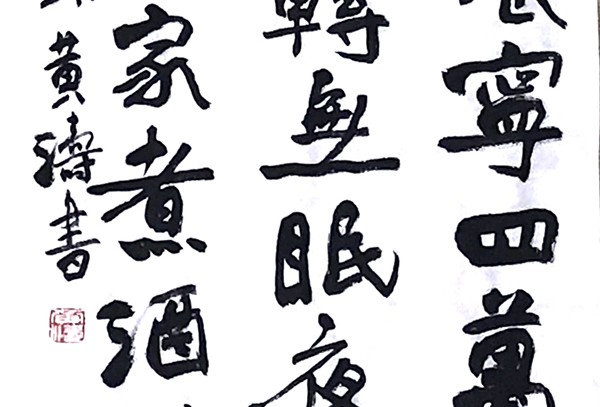 寧四萬
轉無眠夜
家煮酒
黃濤書